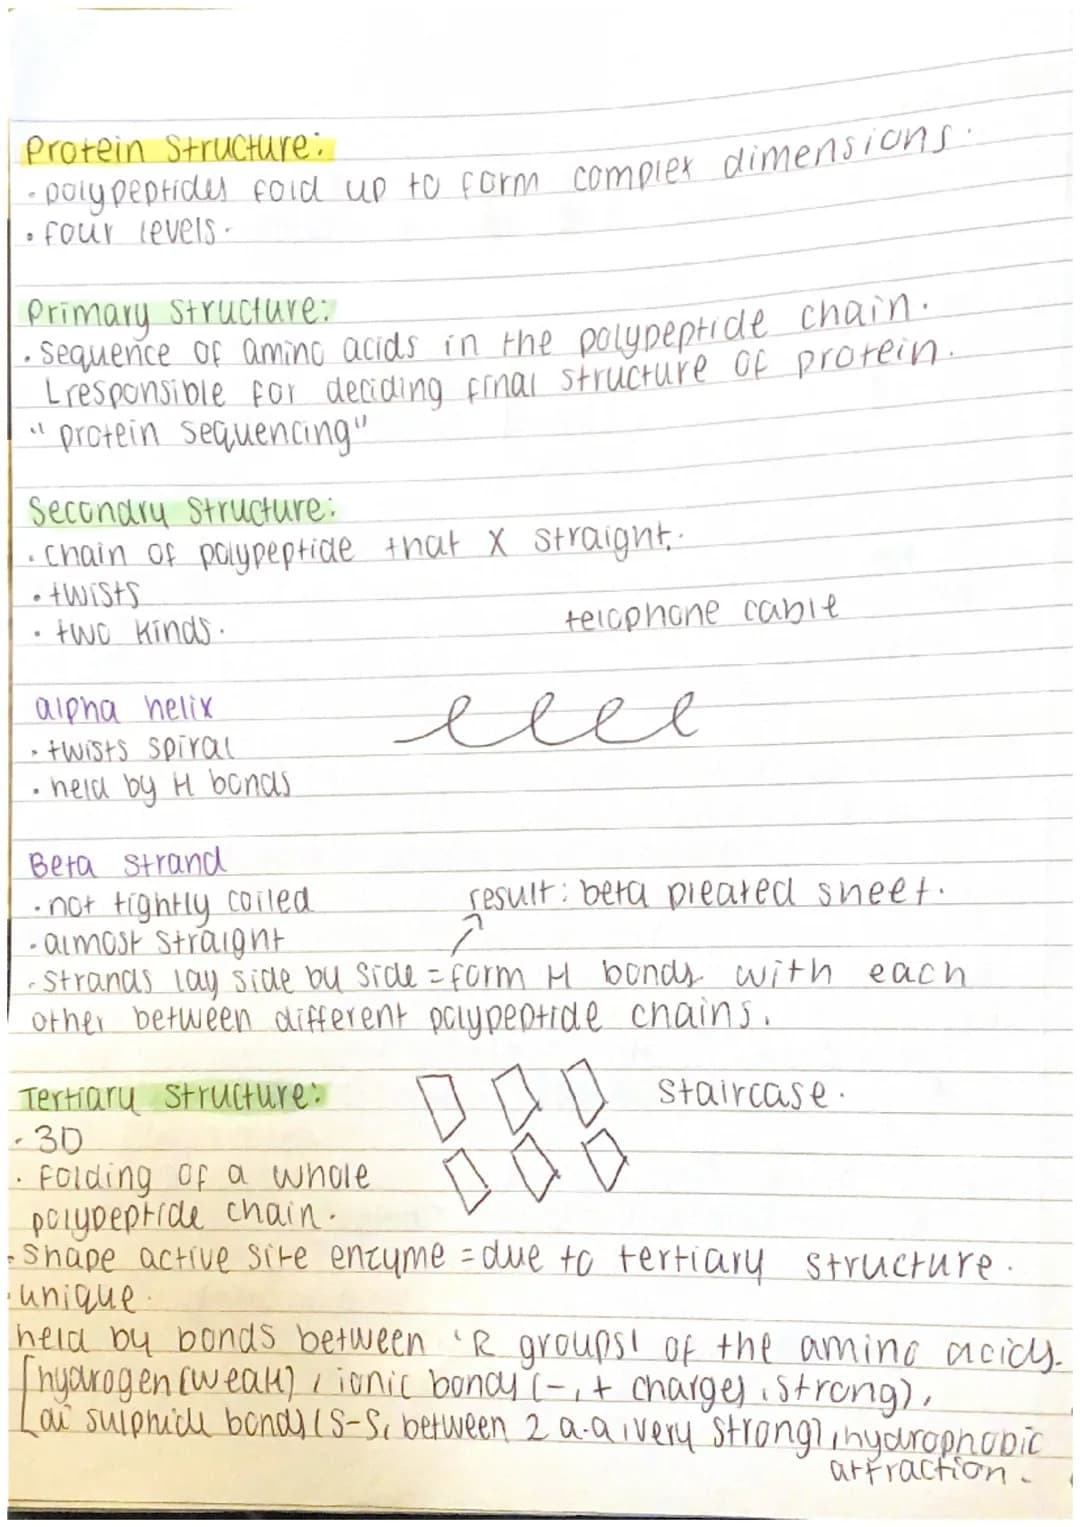 Protein Structure:
· polypeptides fold up to form complex dimensions.
· four levels.
Primary Structure:
· Sequence of amino acids in the polypeptide chain.
responsible for deciding final structure of protein.
" protein sequencing"
Secondry Structure:
· chain of polypeptide that x straight.
· twists
· two kinds.
telophone cable
alpha helix
· twists spiral
· held by H bonds
Beta strand
· not tightly coiled
result: beta pleated sheet.
· almost straight
· strands lay side by side = form H bonds with each
other between different polypeptide chains.
Tertiary structure:
staircase.
· 3D
· folding of a whole
polypeptide chain.
· Shape active site enzyme = due to tertiary structure.
· unique.
held by bonds between 'R groups' of the amino acids.
[hydrogen (weak), ionic bonds (-, + charges, strong),
di sulphide bonds (S-S, between 2 a.a, very strong), hydrophobic
attraction.